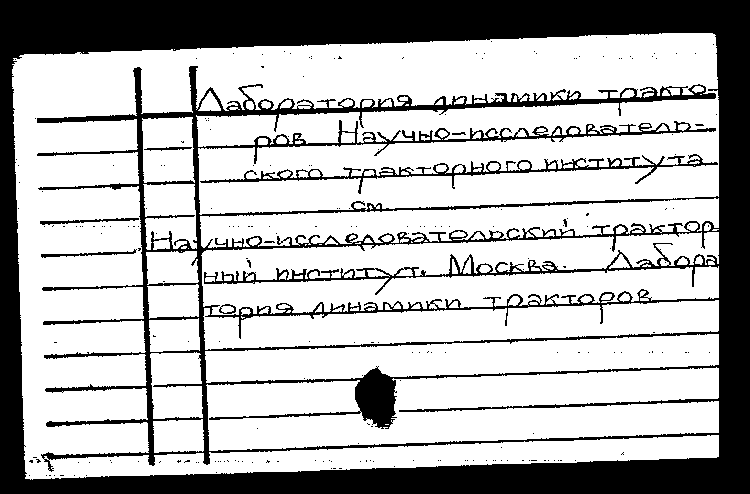 Лаборатория динамики тракто-
ров Научно-исследователь-
ского тракторного института
см.
Научно-исследовательский трактор
ный институт. Москва. Лабора
тория динамики тракторов